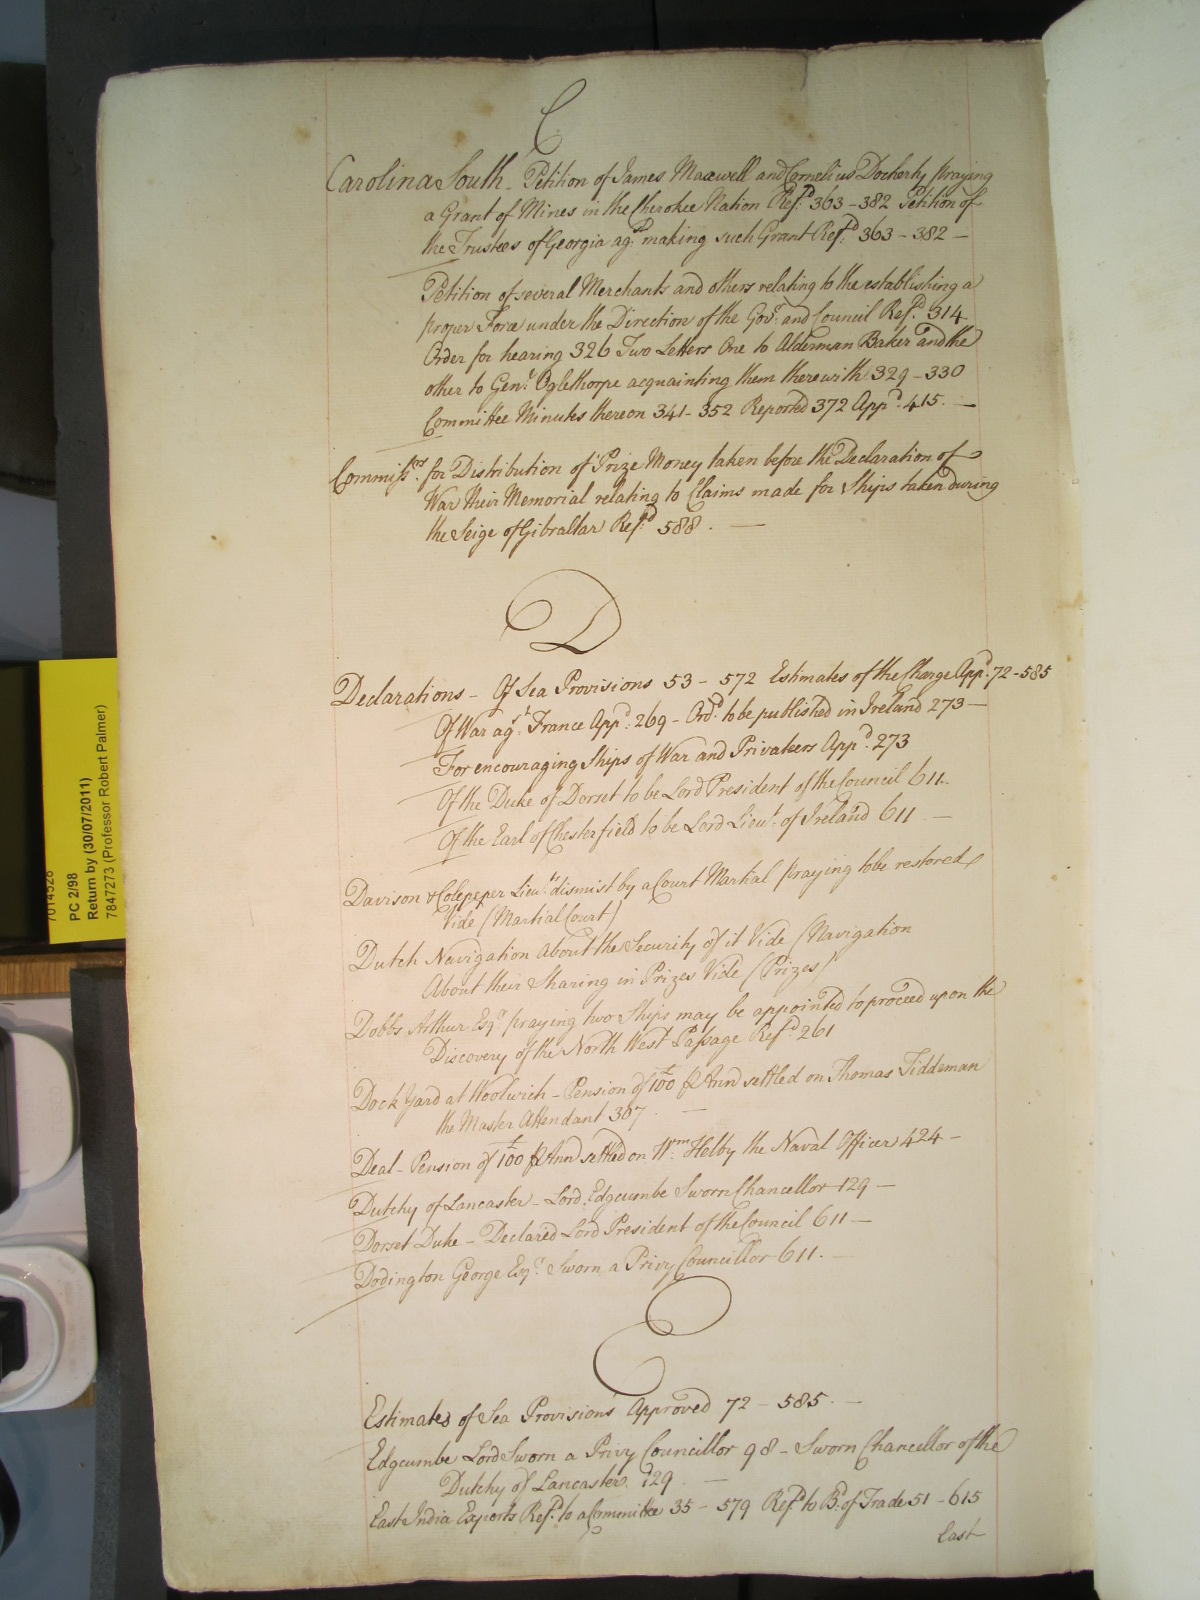 C
Carolina South - Petition of James Maxwell and Cornelius Docherty praying
a Grant of Mines in the Cherokee Nation Ref.d 363 - 382 Petition of
the Trustees of Georgia ag.st making such Grant Ref.d 363 - 382 -
Petition of several Merchants and others relating to the establishing a
proper Force under the Direction of the Gov.r and Council Ref.d 314
Order for hearing 326 Two Letters One to Alderman Baker and the
other to Gen.l Oglethorpe acquainting them therewith 329 - 330
Committee Minutes thereon 341 - 352 Reported 372 App.d 415. -
Commiss.rs for Distribution of Prize Money taken before the Declaration of
War their Memorial relating to Claims made for Ships taken during
the Seige of Gibraltar Ref.d 588. -
D
Declarations - Of Sea Provisions 53 - 572 Estimates of the Charge App.d 72 - 585
Of War ag.t France App.d 269 - Ord.d to be published in Ireland 273 -
For encouraging Ships of War and Privateers App.d 273
Of the Duke of Dorset to be Lord President of the Council 611.
Of the Earl of Chesterfield to be Lord Lieu.t of Ireland 611. -
Davison & Colepeper Lieu.ts dismist by a Court Martial praying to be restored
Vide (Martial Court)
Dutch Navigation About the Security of it Vide (Navigation
About their Sharing in Prizes Vide (Prizes)
Dobbs Arthur Esq.r praying two Ships may be appointed to proceed upon the
Discovery of the North West Passage Ref.d 261
Dock Yard at Woolwich - Pension of £100 ℔ Ann settled on Thomas Tiddeman
the Master Attendant 307. -
Deal - Pension of £100 ℔ Ann settled on W.m Helby the Naval Officer 424 -
Dutchy of Lancaster - Lord Edgcumbe Sworn Chancellor 129 -
Dorset Duke - Declared Lord President of the Council 611 -
Dodington George Esq.r Sworn a Privy Councillor 611. -
E
Estimates of Sea Provisions Approved 72 - 585. -
Edgcumbe Lord Sworn a Privy Councillor 98 - Sworn Chancellor of the
Dutchy of Lancaster. 129. -
East India Exports Ref.d to a Committee 35 - 579 Ref.d to B.d of Trade 51 - 615
East
7014528
PC 2/98
Return by (30/07/2011)
7847273 (Professor Robert Palmer)